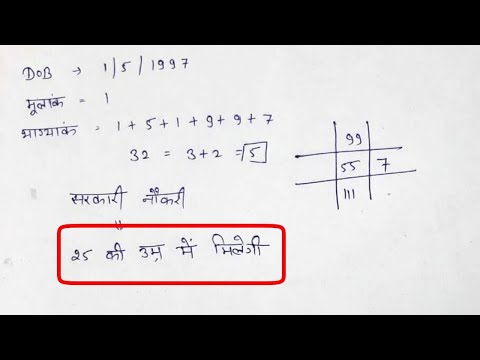 DOB → 1/5/1997
मूलांक = 1
भाग्यांक = 1+5+1+9+9+7
32 = 3+2 = 5
99
55 7
111
सरकारी नौकरी
॥
25 की उम्र में मिलेगी